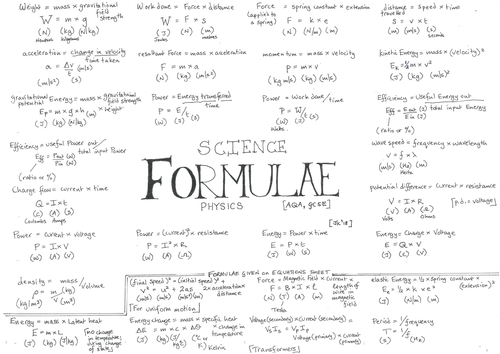 Weight = mass x gravitational field strength
W = m x g
(N) (kg) (N/kg)
Newtons kilograms
Work done = Force x distance
W = F x s
(J) (N) (m)
Joules metres
Force (applied to a spring) = spring constant x extension
F = k x e
(N) (N/m) (m)
distance travelled = speed x time
s = v x t
(m) (m/s) (s)
seconds
acceleration = change in velocity / time taken
a = Δv / t
(m/s²) (m/s) (s)
resultant Force = mass x acceleration
F = m x a
(N) (kg) (m/s²)
momentum = mass x velocity
p = m x v
(kg m/s) (kg) (m/s)
kinetic Energy = ½ x mass x (velocity)²
Ek = ½ x m x v²
(J) (kg) (m/s)²
gravitational potential Energy = mass x gravitational field strength x height
Ep = m x g x h
(J) (kg) (N/kg) (m)
Power = Energy transferred / time
P = E / t
(W) (J) (s)
Power = Work done / time
P = W / t
(W) (J) (s)
Watts
Efficiency = Useful Energy out / total input Energy
(ratio or %)
Efficiency = useful Power out / total input Power
(ratio or %)
SCIENCE
FORMULAE
PHYSICS
[AQA, GCSE]
wave speed = frequency x wavelength
v = f x λ
(m/s) (Hz) (m)
Charge flow = current x time
Q = I x t
(C) (A) (s)
Coulombs Amps
potential difference = Current x resistance
V = I x R
(V) (A) (Ω)
Volts Ohms
[p.d. = voltage]
Power = current x voltage
P = I x V
(W) (A) (V)
Power = (current)² x resistance
P = I² x R
(W) (A) (Ω)
Energy = Power x time
E = P x t
(J) (W) (s)
Energy = Charge x Voltage
E = Q x V
(J) (C) (V)
density = mass / Volume
ρ = m / V
(kg/m³) (kg) (m³)
FORMULAE GIVEN ON EQUATIONS SHEET
(final speed)² = (initial speed)² + 2 x acceleration x distance
v² = u² + 2as
(m/s) (m/s) (m/s²)(m)
[For uniform motion]
Force = Magnetic field x current x length of wire in magnetic field
F = B x I x l
(N) (T) (A) (m)
Tesla
elastic Energy = ½ x spring constant x (extension)²
Ee = ½ x k x e²
(J) (N/m) (m)
Energy = mass x Latent heat
E = m x L
(J) (kg) (J/kg)
[no change in temperature during change of state]
Energy change = mass x specific heat x change in temperature
ΔE = m x c x Δθ
K) Kelvin
Voltage (secondary) x current (secondary) = Voltage (primary) x current (primary)
VsIs = VpIp
[Transformers]
Period = 1/frequency
T = 1/f
(s) (Hz)